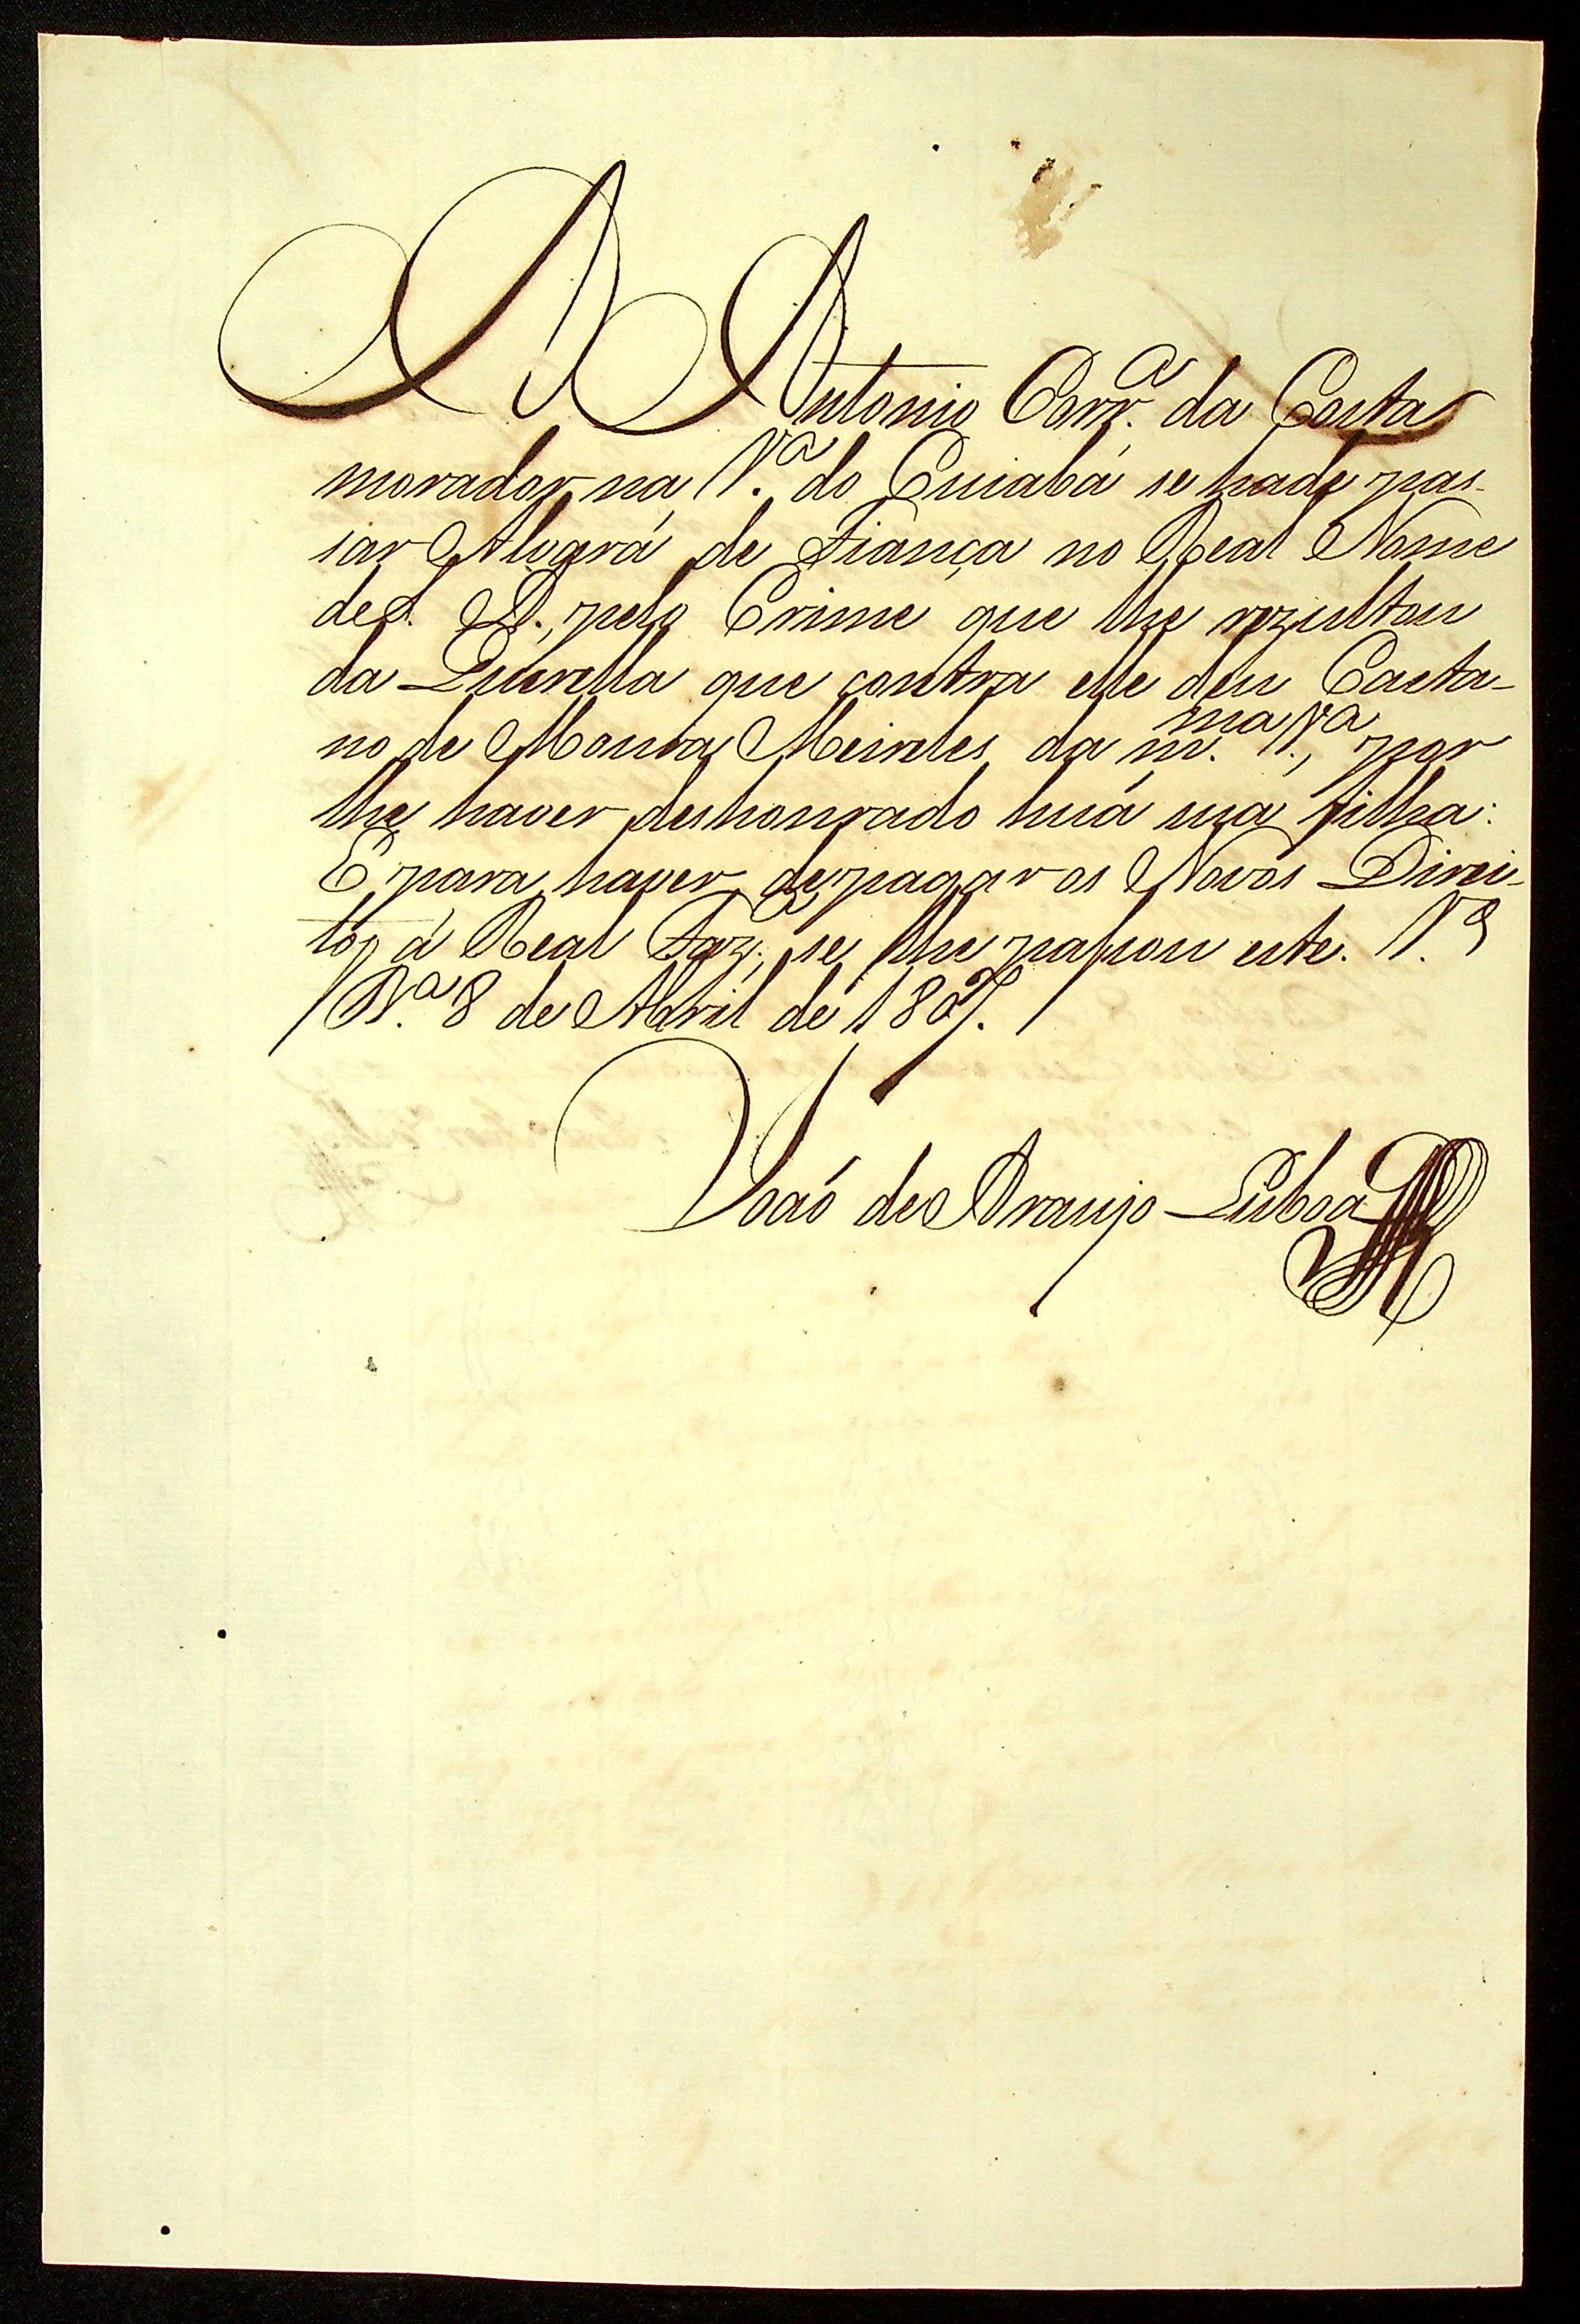 A Antonio Corr.ª da Costa
morador na V.ª do Cuiabá se hade pas-
sar Alvará de Fiança no Real Nome
de S. A., pelo Crime que lhe rezultou
da Querella que contra elle deu Caeta-
no de Moura Meireles da m.ma V.ª, por
lhe haver deshonrado huá sua filha:
E para haver de pagar os Novos Direi-
tos á Real Faz.ª, se lhe passou este. V.ª
B.ª 8 de Abril de 1807.
Joaõ de Araujo Lisboa